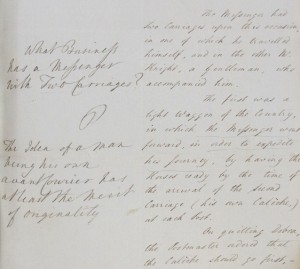 What Business
has a Messenger
with Two Carriages?
The Idea of a man
being his own
avantcourier has
at least the Merit
of originality
The Messenger had
two Carriages upon this occasion,
in one of which he travelled
himself, and in the other Mr.
Knight, a Gentleman, who
accompanied him.
The first was a
light Waggon of the Country,
in which the Messenger went
forward, in order to expedite
his Journey, by having the
Horses ready by the time of
the arrival of the Second
Carriage (his own Caliche)
at each Post.
On quitting
the Postmaster advised that
the Caliche should go first,